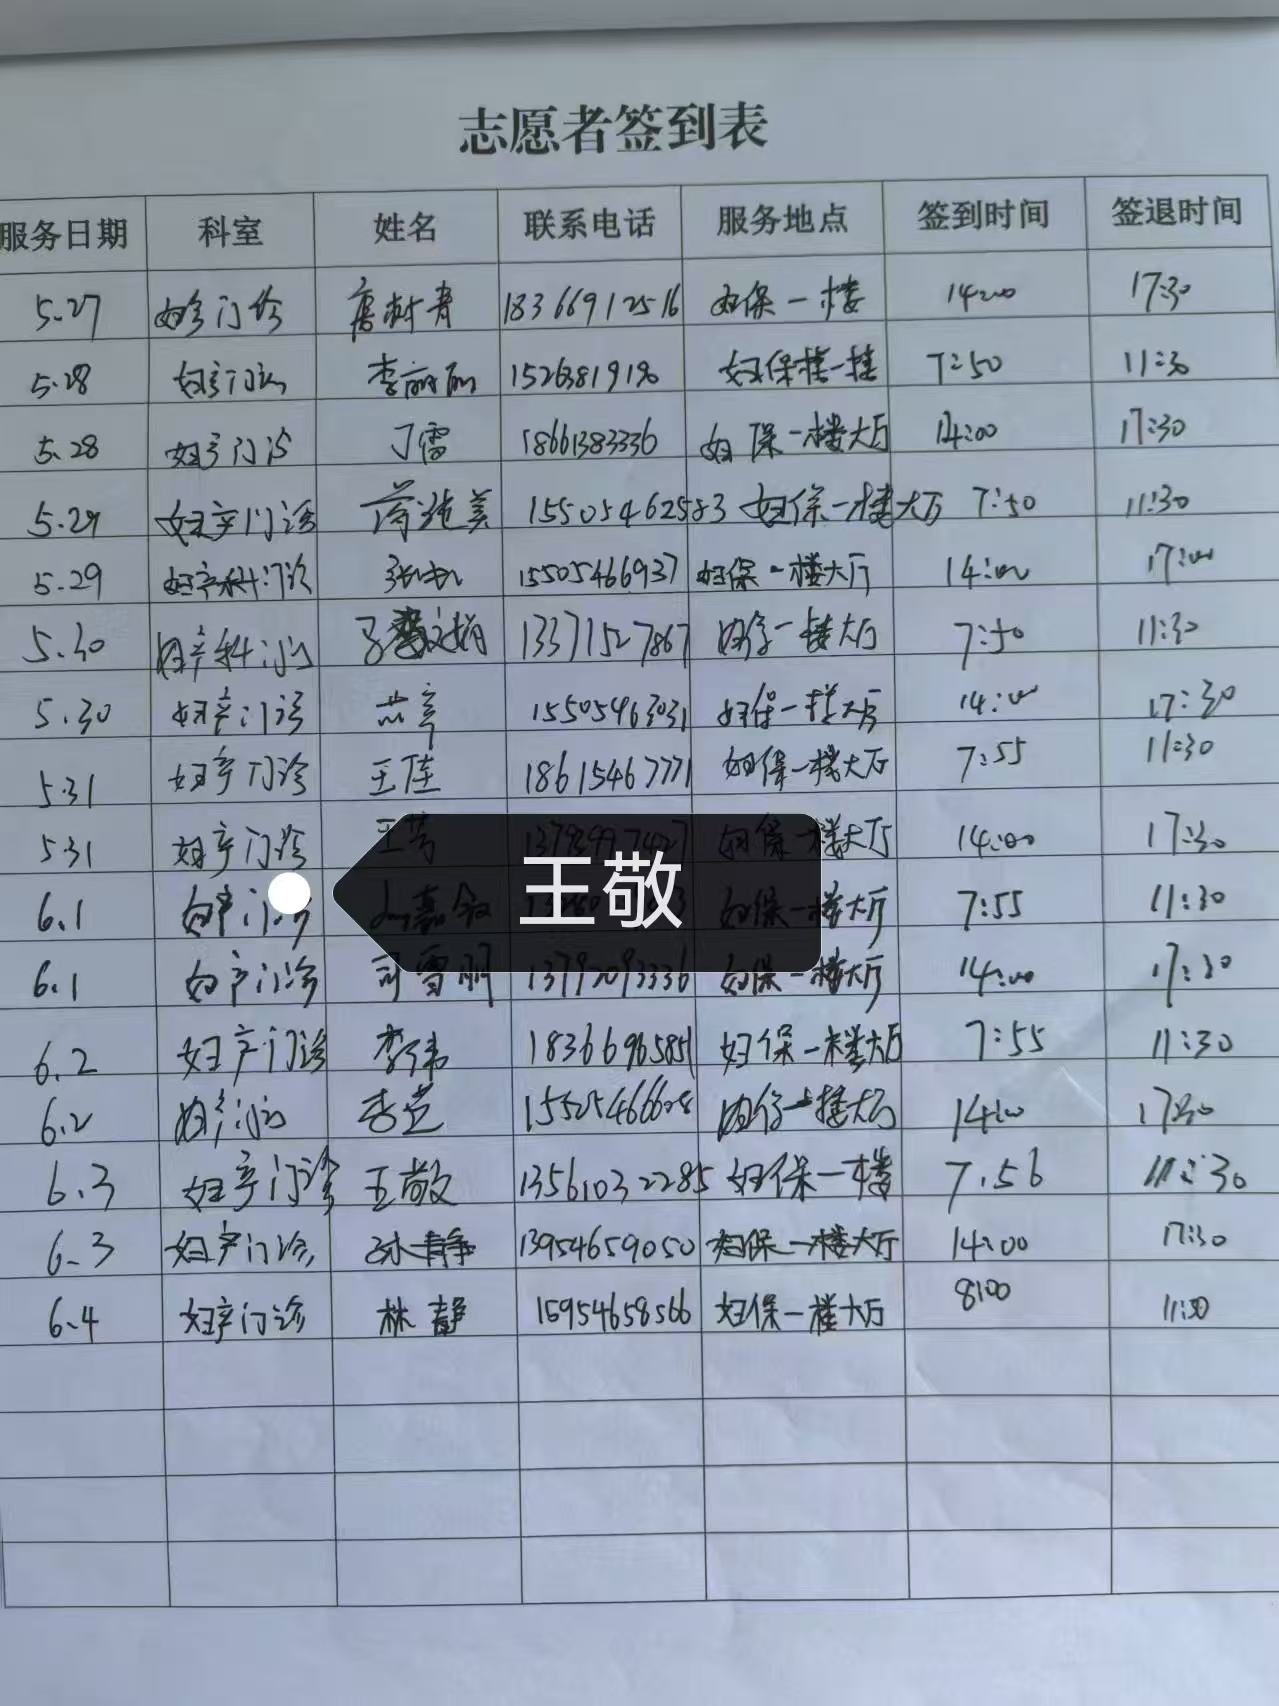 志愿者签到表
服务日期 科室 姓名 联系电话 服务地点 签到时间 签退时间
5.27 妇产门诊 18366912516 妇保一楼 14:00 17:30
5.28 妇产门诊 李丽丽 妇保楼一楼 7:50 11:30
5.28 妇产门诊 丁雷 18661383336 妇保一楼大厅 14:00 17:30
5.29 妇产门诊 15505462583 妇保一楼大厅 7:50 11:30
5.29 妇产科门诊 15505466937 妇保一楼大厅 14:00 17:00
5.30 妇产科门诊 13371527867 妇保一楼大厅 7:50 11:30
5.30 妇产门诊 15505463031 妇保一楼大厅 14:00 17:30
5.31 妇产门诊 王佳 18615467771 妇保一楼大厅 7:55 11:30
5.31 妇产门诊 王芳 妇保一楼大厅 14:00 17:30
6.1 妇产门诊 妇保一楼大厅 7:55 11:30
王敬
6.1 妇产门诊 13792093336 妇保一楼大厅 14:00 17:30
6.2 妇产门诊 李伟 18366965851 妇保一楼大厅 7:55 11:30
6.2 妇产门诊 妇保一楼大厅 14:00 17:30
6.3 妇产门诊 王敬 13561032285 妇保一楼 7.56 11:30
6.3 妇产门诊 孙静 13954659050 妇保一楼大厅 14:00 17:30
6.4 妇产门诊 林静 15954658566 妇保一楼大厅 8:00